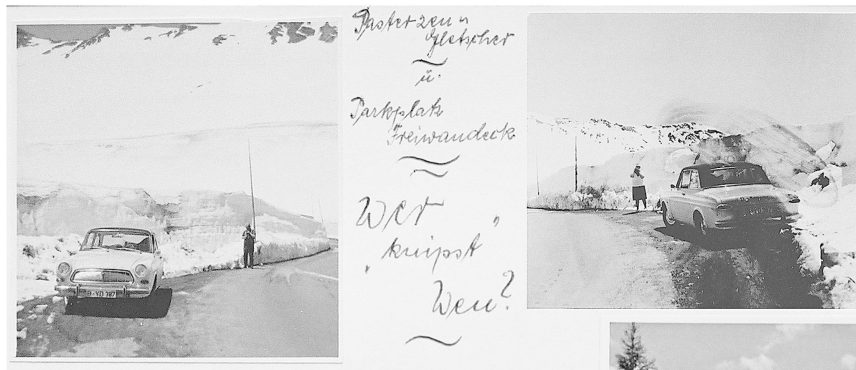 Pasterzen
Gletscher
u.
Parkplatz
Freiwandeck
Wer
"knipst"
Wen?
B-YD 787